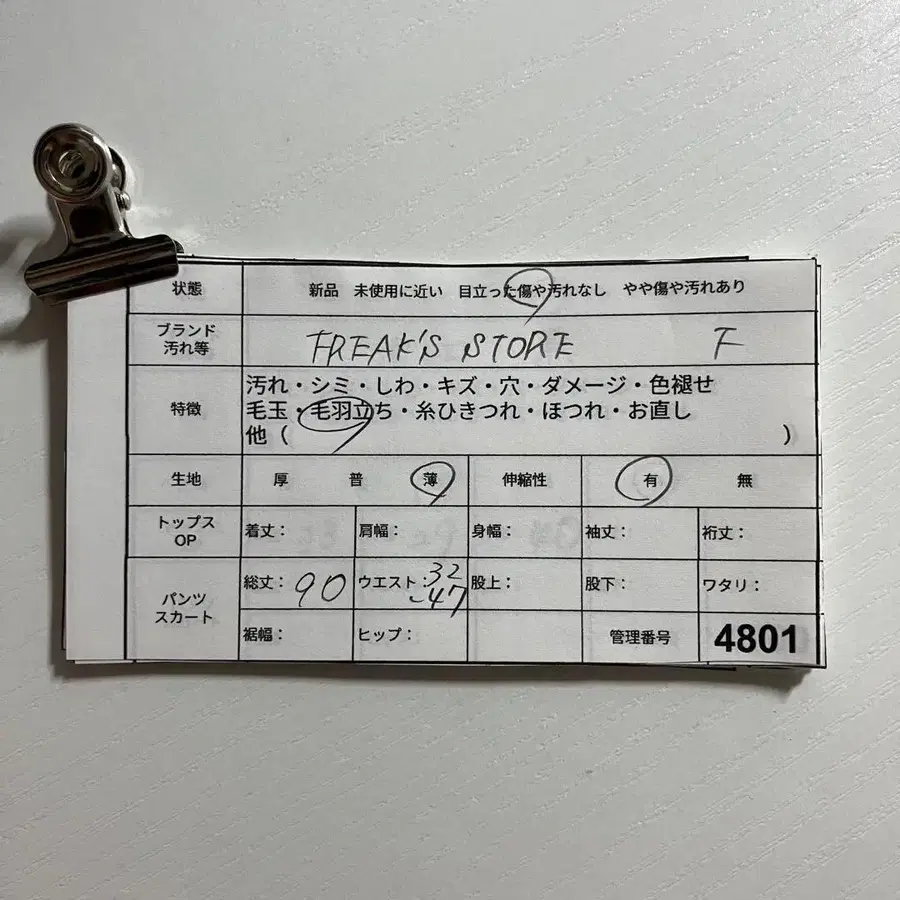 状態 新品 未使用に近い 目立った傷や汚れなし やや傷や汚れあり
ブランド
汚れ等 FREAK'S STORE F
特徴 汚れ・シミ・しわ・キズ・穴・ダメージ・色褪せ
毛玉・毛羽立ち・糸ひきつれ・ほつれ・お直し
他（ ）
生地 厚 普 薄 伸縮性 有 無
トップス
OP 着丈： 肩幅： 身幅： 袖丈： 裄丈：
パンツ
スカート 総丈：90 ウエスト：32
~47 股上： 股下： ワタリ：
裾幅： ヒップ： 管理番号 4801